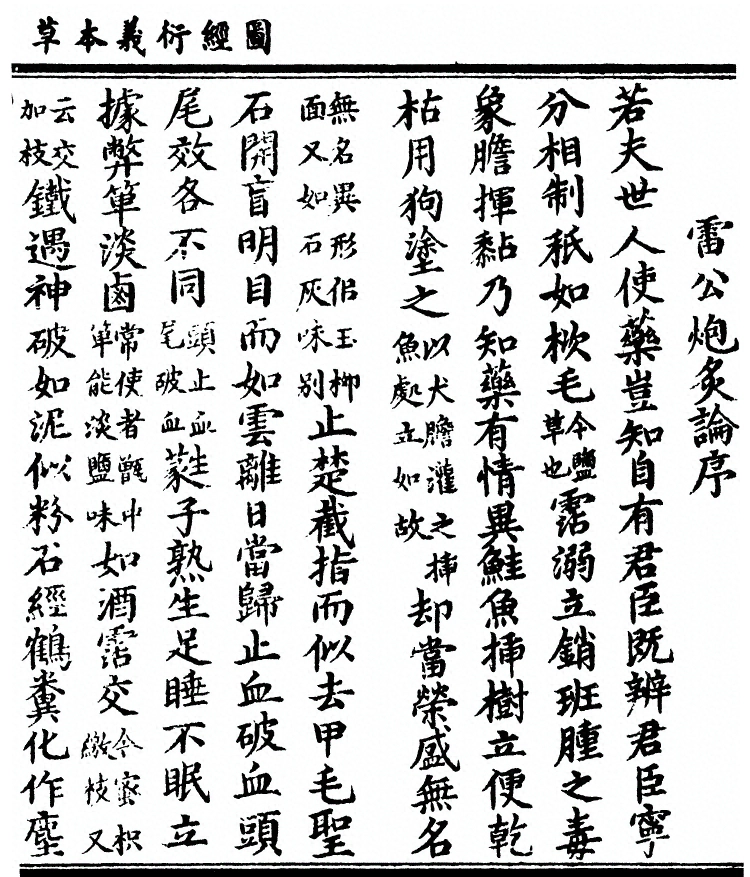 圖經衍義本草
雷公炮炙論序
若夫世人使藥豈知自有君臣既辨君臣寧
分相制秖如栨毛今鹽草也霑溺立銷班腫之毒
象膽揮黏乃知藥有情異鮭魚挿樹立便乾
枯用狗塗之以犬膽灌之挿魚處立如故却當榮盛無名
無名異形侣玉柳面又如石灰味别止楚截指而似去甲毛聖
石開盲明目而如雲離日當歸止血破血頭
尾效各不同頭止血尾破血蕤子熟生足睡不眠立
據弊箄淡鹵常使者甑中箄能淡鹽味如酒霑交今蜜枳繳枝又
云交加枝鐵遇神破如泥似粉石經鶴糞化作塵